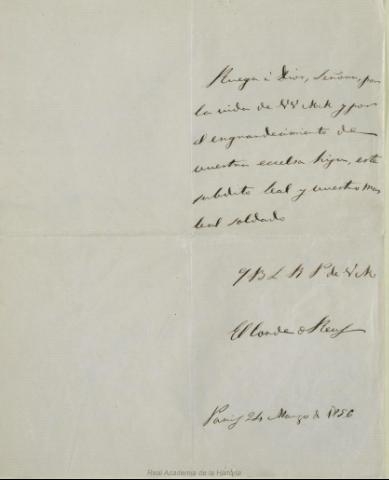 Ruega à Dios, Señora, por
la vida de VV MM y por
el engrandecimiento de
vuestra excelsa hija, este
subdito leal y vuestro mas
leal soldado
Q B L R P de V M
El Conde de Reus
Paris 24 Marzo de 1856
Real Academia de la Historia